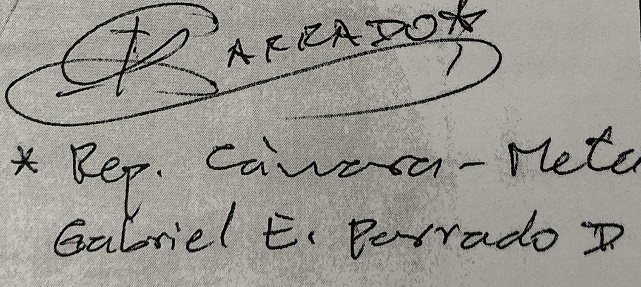 PARRADO*
* Rep. Cámara - Meta
Gabriel E. Parrado D